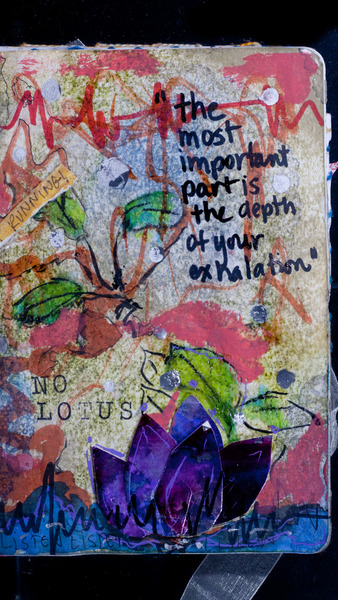 "the
most
important
part is
the depth
of your
exhalation"
RUNNING!
NO
LOTUS
LISTEN LISTEN